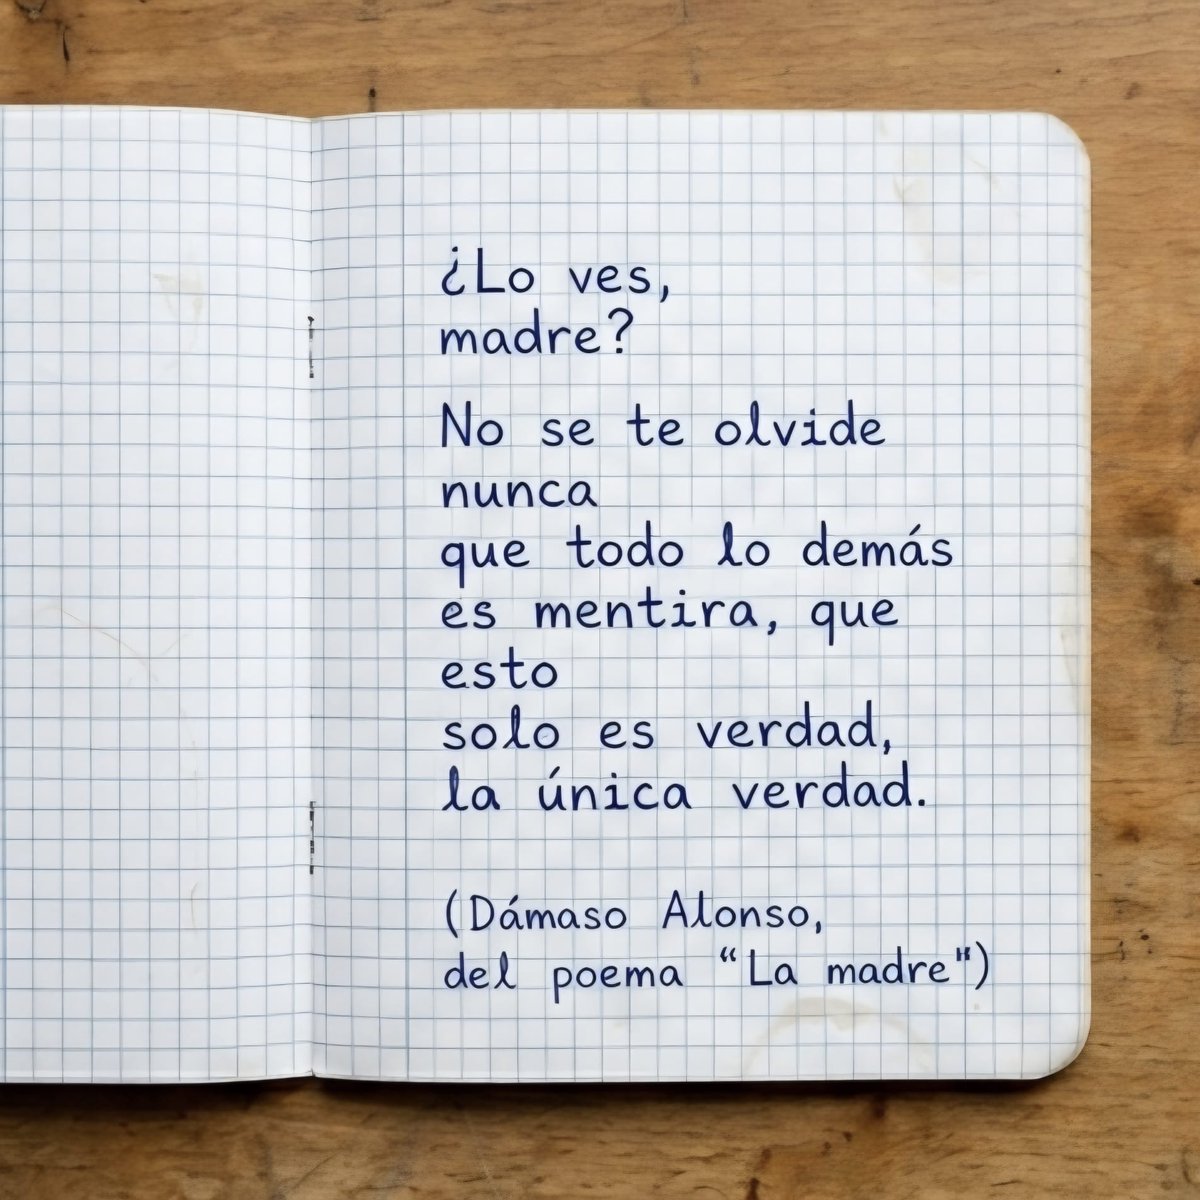 ¿Lo ves,
madre?
No se te olvide
nunca
que todo lo demás
es mentira, que
esto
solo es verdad,
la única verdad.
(Dámaso Alonso,
del poema “La madre")